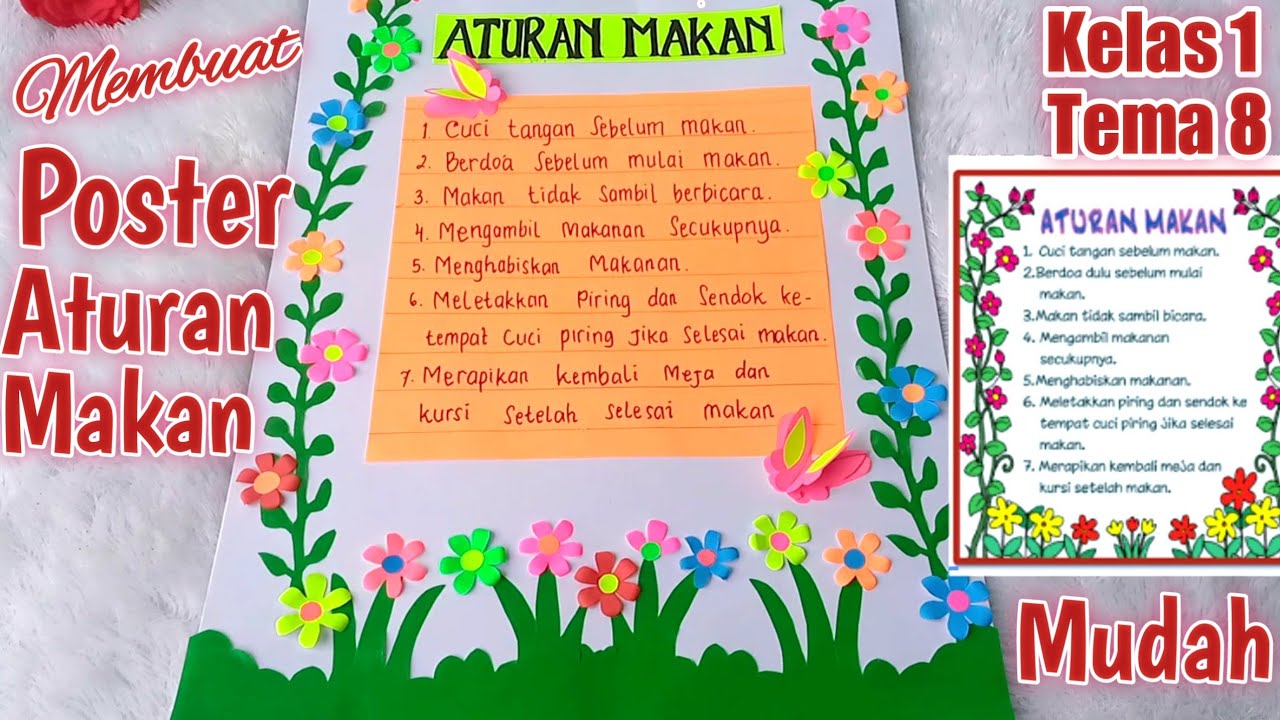 Membuat
Poster
Aturan
Makan
ATURAN MAKAN
1. Cuci tangan Sebelum makan.
2. Berdoa Sebelum mulai makan.
3. Makan tidak Sambil berbicara.
4. Mengambil Makanan Secukupnya.
5. Menghabiskan Makanan.
6. Meletakkan Piring dan Sendok ke-
tempat Cuci piring Jika Selesai makan.
7. Merapikan kembali Meja dan
kursi Setelah selesai makan
Kelas 1
Tema 8
ATURAN MAKAN
1. Cuci tangan sebelum makan.
2.Berdoa dulu sebelum mulai
makan.
3.Makan tidak sambil bicara.
4. Mengambil makanan
secukupnya.
5.Menghabiskan makanan.
6. Meletakkan piring dan sendok ke
tempat cuci piring Jika selesai
makan.
7. Merapikan kembali meja dan
kursi setelah makan.
Mudah